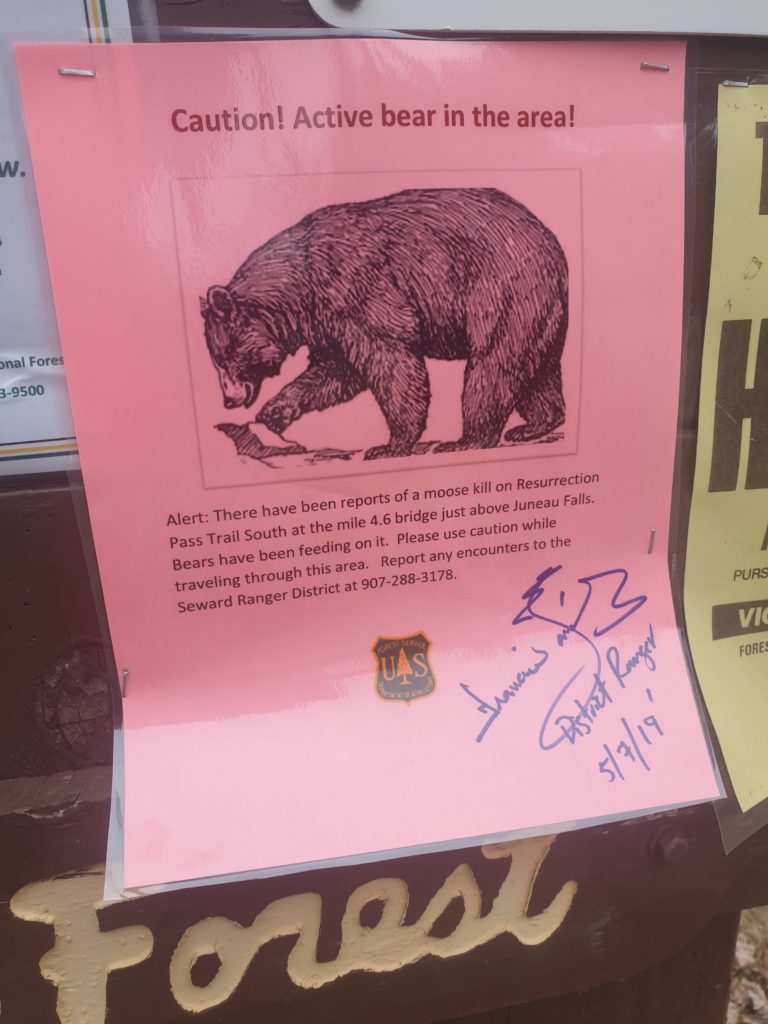 Caution! Active bear in the area!
Alert: There have been reports of a moose kill on Resurrection
Pass Trail South at the mile 4.6 bridge just above Juneau Falls.
Bears have been feeding on it. Please use caution while
traveling through this area. Report any encounters to the
Seward Ranger District at 907-288-3178.
FOREST SERVICE
U S
DEPARTMENT OF AGRICULTURE
District Ranger
5/7/19
Forest
w.
onal Fores
3-9500
H
PURS
VIO
FORES